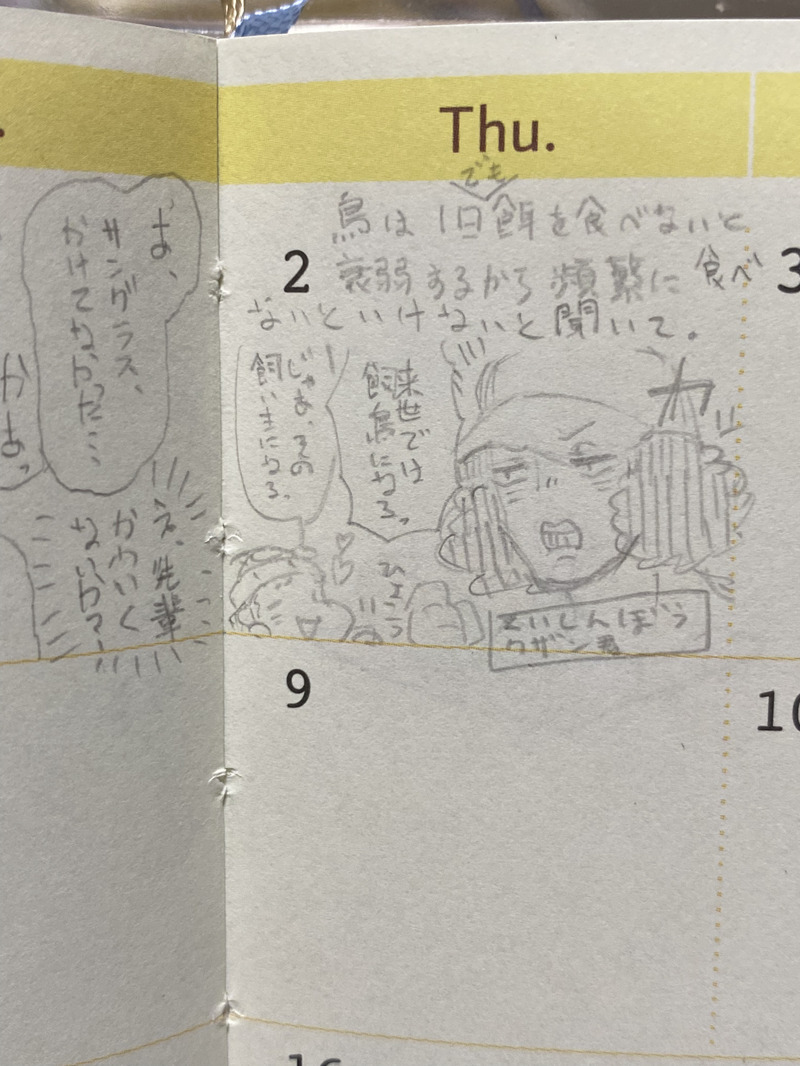 Thu.
でも
鳥は1日餌を食べないと
2
衰弱するから頻繁に食べ
3
ないといけないと聞いて。
来世では
飼鳥になる。
じゃあ、その
飼い主になる。
カッ
ひょこっ
くいしんぼう
クザン君
あ、
サングラス、
かけてなかった…
え、先輩
かわいく
ないか?
9
10
16